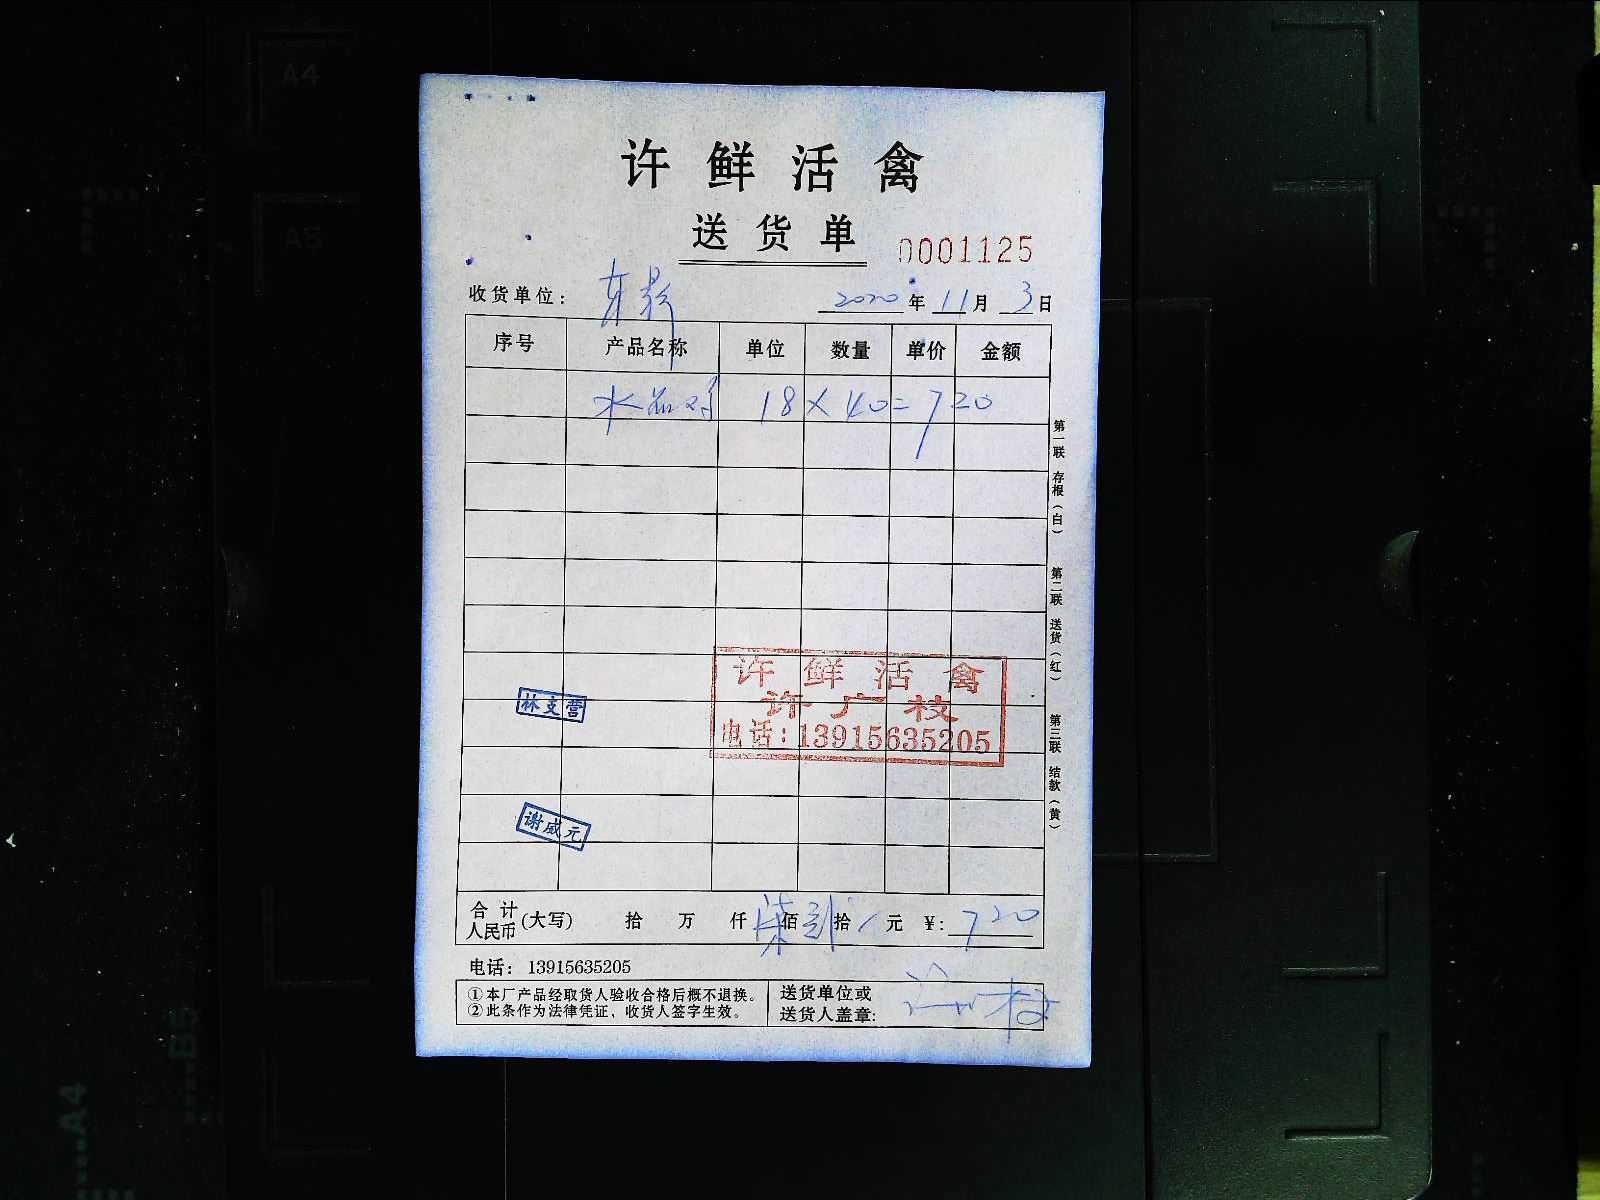 许鲜活禽
送货单 0001125
收货单位： 2020年11月3日
序号 产品名称 单位 数量 单价 金额
水品鸡 18×40=720
第一联 存根（白） 第二联 送货（红） 第三联 结款（黄）
许鲜活禽
许广枝
电话：13915635205
林支营
谢威元
合计人民币(大写) 拾 万 仟 柒佰 贰拾 / 元 ¥：720
电话：13915635205
①本厂产品经取货人验收合格后概不退换。
②此条作为法律凭证，收货人签字生效。
送货单位或
送货人盖章：
A4
A5
B5
A4